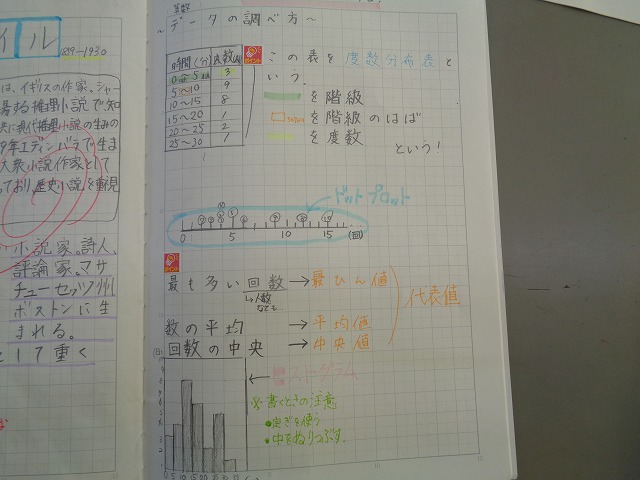 イル
1859-1930
は、イギリスの作家。シャー
場する推理小説で知
共に現代推理小説の生みの
9年エディンバラで生ま
大衆小説作家として
っており、歴史小説を重視
小説家。詩人、
評論家。マサ
チューセッツ州
ボストンに生
まれる。
として重く
算数
~データの調べ方~
時間(分) 人数(人)
0~5 3
5~10 9
10~15 8
15~20 1
20~25 2
25~30 1
ポイント
この表を度数分布表と
いう。
を階級
を階級のはば
を度数
という!
ドットプロット
0 5 10 15 (回)
ポイント
最も多い回数→最ひん値
↳人数
など
代表値
数の平均→平均値
回数の中央→中央値
ストグラム
※書くときの注意
•定ぎを使う
•中をぬりつぶす。
0 5 10 15 20 25 30 35